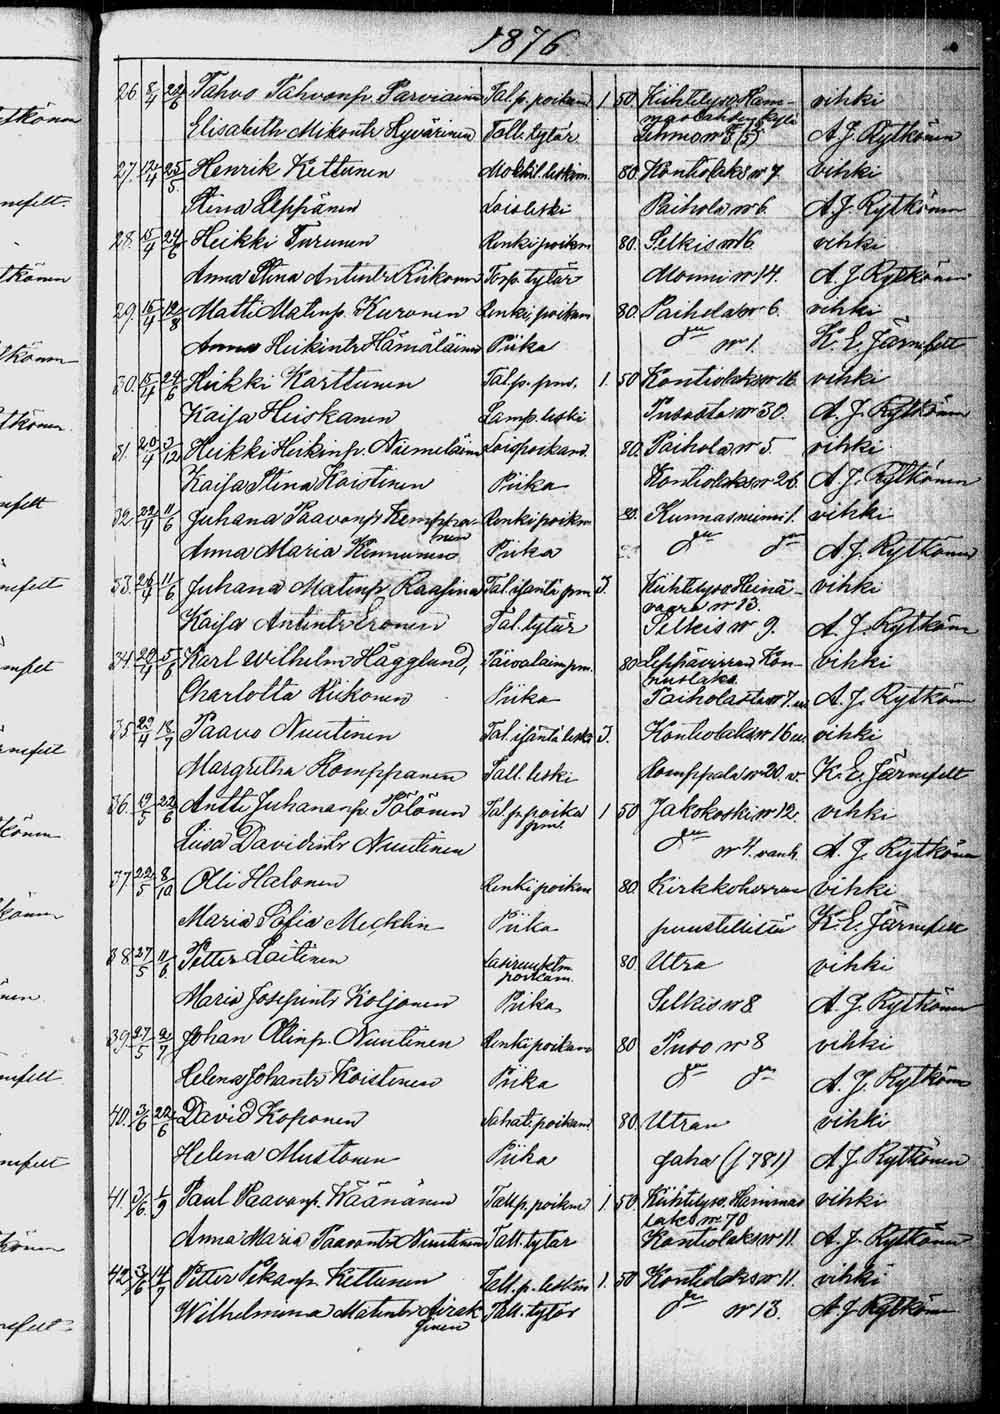 1876.
26 8/4 22/6 Tahvo Tahvonp. Parviainen Tal. p. poikam 1 50 Kiihtelysv. Ham-
maslahden kylä
Elisabeth Mikontr Hyvärinen Tall. tytär Lehmo № 5 vihki
A. J. Rytkönen
27. 12/4 25/5 Henrik Kettunen Mökkil. leskim. 80. Kontiolaks № 7 vihki
Stina Leppänen Lois leski Paihola № 6. A. J. Rytkönen
28. 15/4 24/6 Heikki Turunen Renki poikm 80. Selkis № 16. vihki
Anna Stina Antintr Riikonen Torp. tytär Monni № 14. A. J. Rytkönen
29. 15/4 12/8 Matti Matinp. Kuronen Renki poikam 80. Paihola № 6. vihki
Anna Heikintr Hämäläinen Piika do № 1. K. E. Järnefelt
30. 15/4 24/6 Heikki Karttunen Tal. p. pm. 1. 50 Kontiolaks № 16. vihki
Kaisa Heiskanen Lamp. leski Puso № 30. A. J. Rytkönen
31. 20/4 3/12 Heikki Heikinp. Niemeläinen Lois poikam. 80. Paihola № 5. vihki
Kaisa Stina Koistinen Piika Kontiolaks № 26. A. J. Rytkönen
32. 22/4 11/6 Juhana Paavonp. Kemppai-
nen Renki poikm 80. Kunnasniemi 1. vihki
Anna Maria Kinnunen Piika do do A. J. Rytkönen
33. 11/6 Juhana Matinp. Raasina Tal. isäntä pm 3. Kiihtelysv. Heinä-
vaara № 13. vihki
Kaisa Antintr Eronen Tal. tytär Selkis № 9. A. J. Rytkönen
34. 29/4 5/6 Karl Wilhelm Hägglund, Päivaläin pm. 80 Leppävirran Kon-
nuslaks vihki
Charlotta Riikonen Piika Paiholasta № 7. A. J. Rytkönen
35 29/4 18/7 Paavo Nuutinen Tal. isäntä leski 3. Kontiolaks № 16 vihki
Margretha Romppanen Tall. leski Romppala № 20. v. K. E. Järnefelt
36. 19/5 22/6 Antti Juhananp. Pölönen Tal. p. poika
pm. 1 50 Jakokoski № 12. vihki
Liisa Davidintr Nuutinen do № 4. vanh. A. J. Rytkönen
37. 22/5 8/10 Olli Halonen Renki poikm 80. Kirkkoherran vihki
Maria Sofia Mecklin Piika puustellista K. E. Järnefelt
38 27/5 11/6 Petter Laitinen
poikam. 80 Utra vihki
Maria Josepintr Koljonen Piika Selkis № 8. A. J. Rytkönen
39. 27/5 2/7 Johan Ollinp. Nuutinen Renki poikam 80 Puso № 8 vihki
Helena Johantr Koistinen Piika do do A. J. Rytkönen
40. 3/6 22/6 David Koponen Sahati. poikam 80. Utran vihki
Helena Mustonen Piika saha (s 781) A. J. Rytkönen
41. 3/6 1/9 Paul Paavonp. Wäänänen Tall. p. poikm 1. 50. Kiihtelysv. Hammas
laks № 70 vihki
Anna Maria Paavontr Nuutinen Tall. tytär Kontiolaks № 11. A. J. Rytkönen
42. 3/6 14/7 Petter Pekanp. Kettunen Tall. p. leskm 1. 50 Kontiolaks № 11. vihki
Wilhelmina Matintr Airak-
sinen Tall. tytär do № 13. A. J. Rytkönen